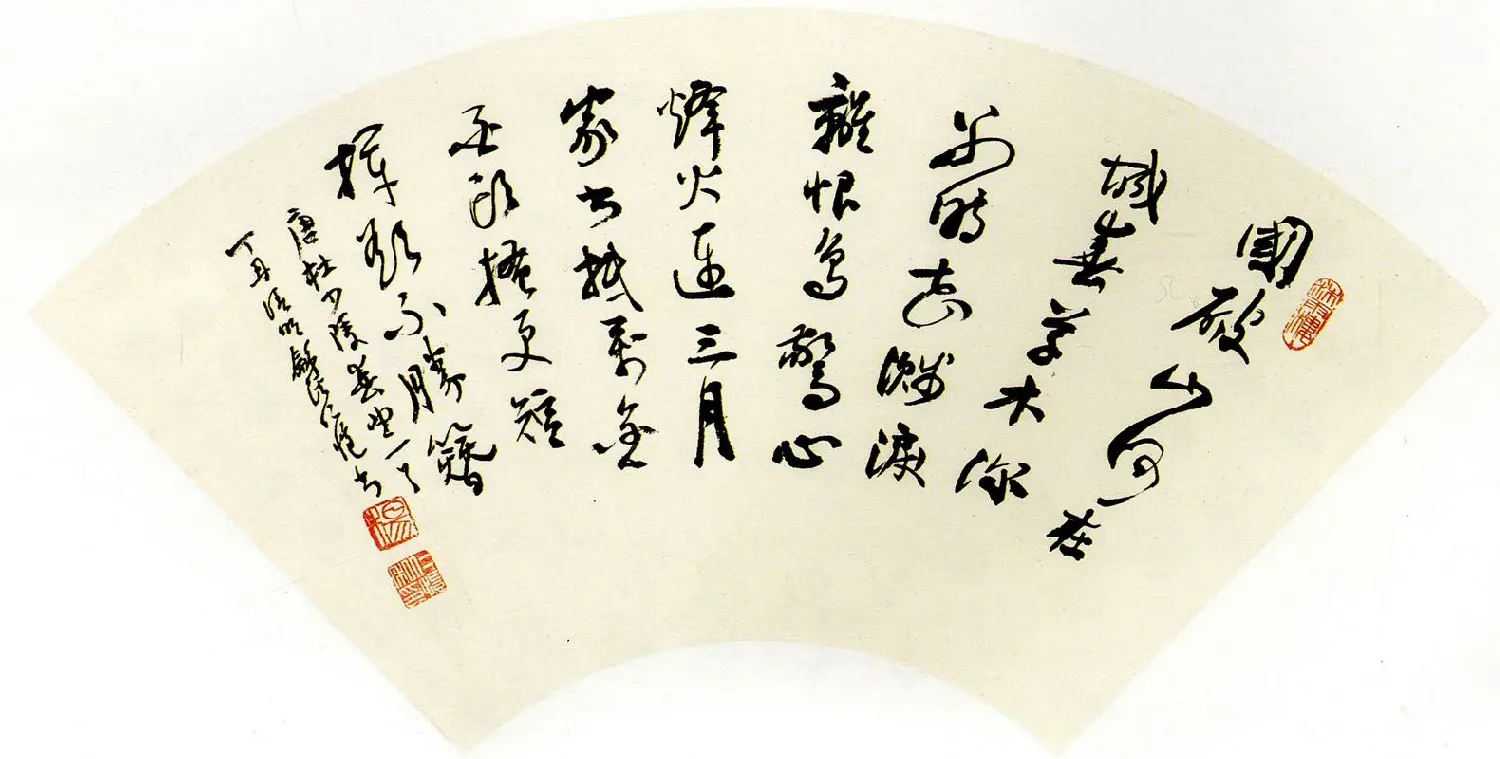 國破山河在
城春草木深
時花濺淚
離恨鳥驚心
烽火連三月
家書抵萬金
頭搔更短
渾欲不勝簪
唐杜少陵春望一首
丁丑清明書